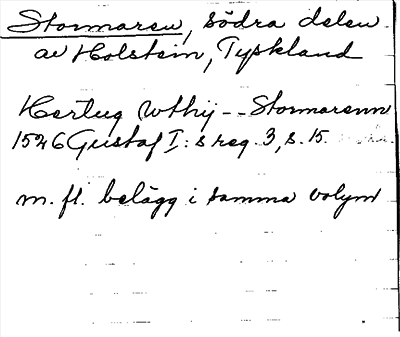 Stormaren, södra delen
av Holstein, Tyskland
Hertug Wthij -- Stormarenn
1526 Gustaf I:s reg. 3, s. 15.
m. fl. belägg i samma volym